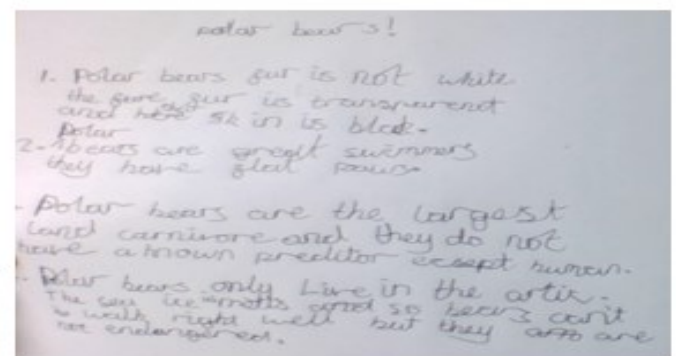 polar bears!
1. Polar bears fur is not white
the fur is transparent
and skin is blak.
Polar
2. bears are great swimmers
they have flat paws.
Polar bears are the largest
land carnivore and they do not
have a known preditor except human.
Polar bears only Live in the artic.
The sea ice and so bears can't
walk right well but they are
not endangered.